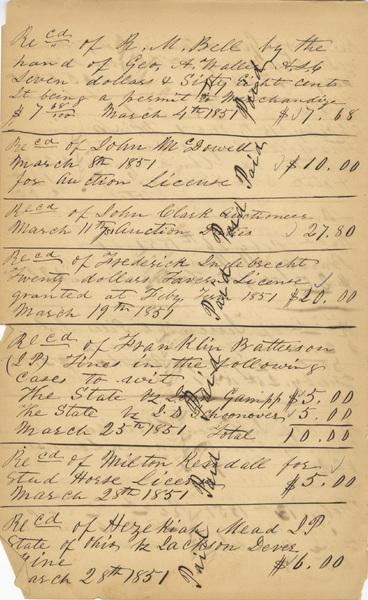 Recd of R. M. Bell by the
hand of Geo. A. Waller
Seven dollars & Sixty Eight cents
It being a permit to Merchandize
$ 7 68/100 March 4th 1851 $ 7. 68
Paid
Recd of John McDowell
March 8th 1851 $ 10.00
for Auction License
Paid
Recd of John Clark Auctioneer
March 11th Auction Duties 27.80
Paid
Recd of Frederick
Twenty dollars Tavern License
granted at Feby 1851 $20.00
March 19th 1851
Paid
Recd of Franklin Batterson
(J P) Fines in the following
Cases to wit
The State vs Gumpp $5.00
The State vs J. D. Schoonover 5.00
March 25th 1851 Total 10.00
Paid
Recd of Milton Kendall for
Stud Horse License $5.00
March 28th 1851
Paid
Recd of Hezekiah Mead J P
State of Ohio vs Jackson Dever
Fine $6.00
arch 28th 1851
Paid